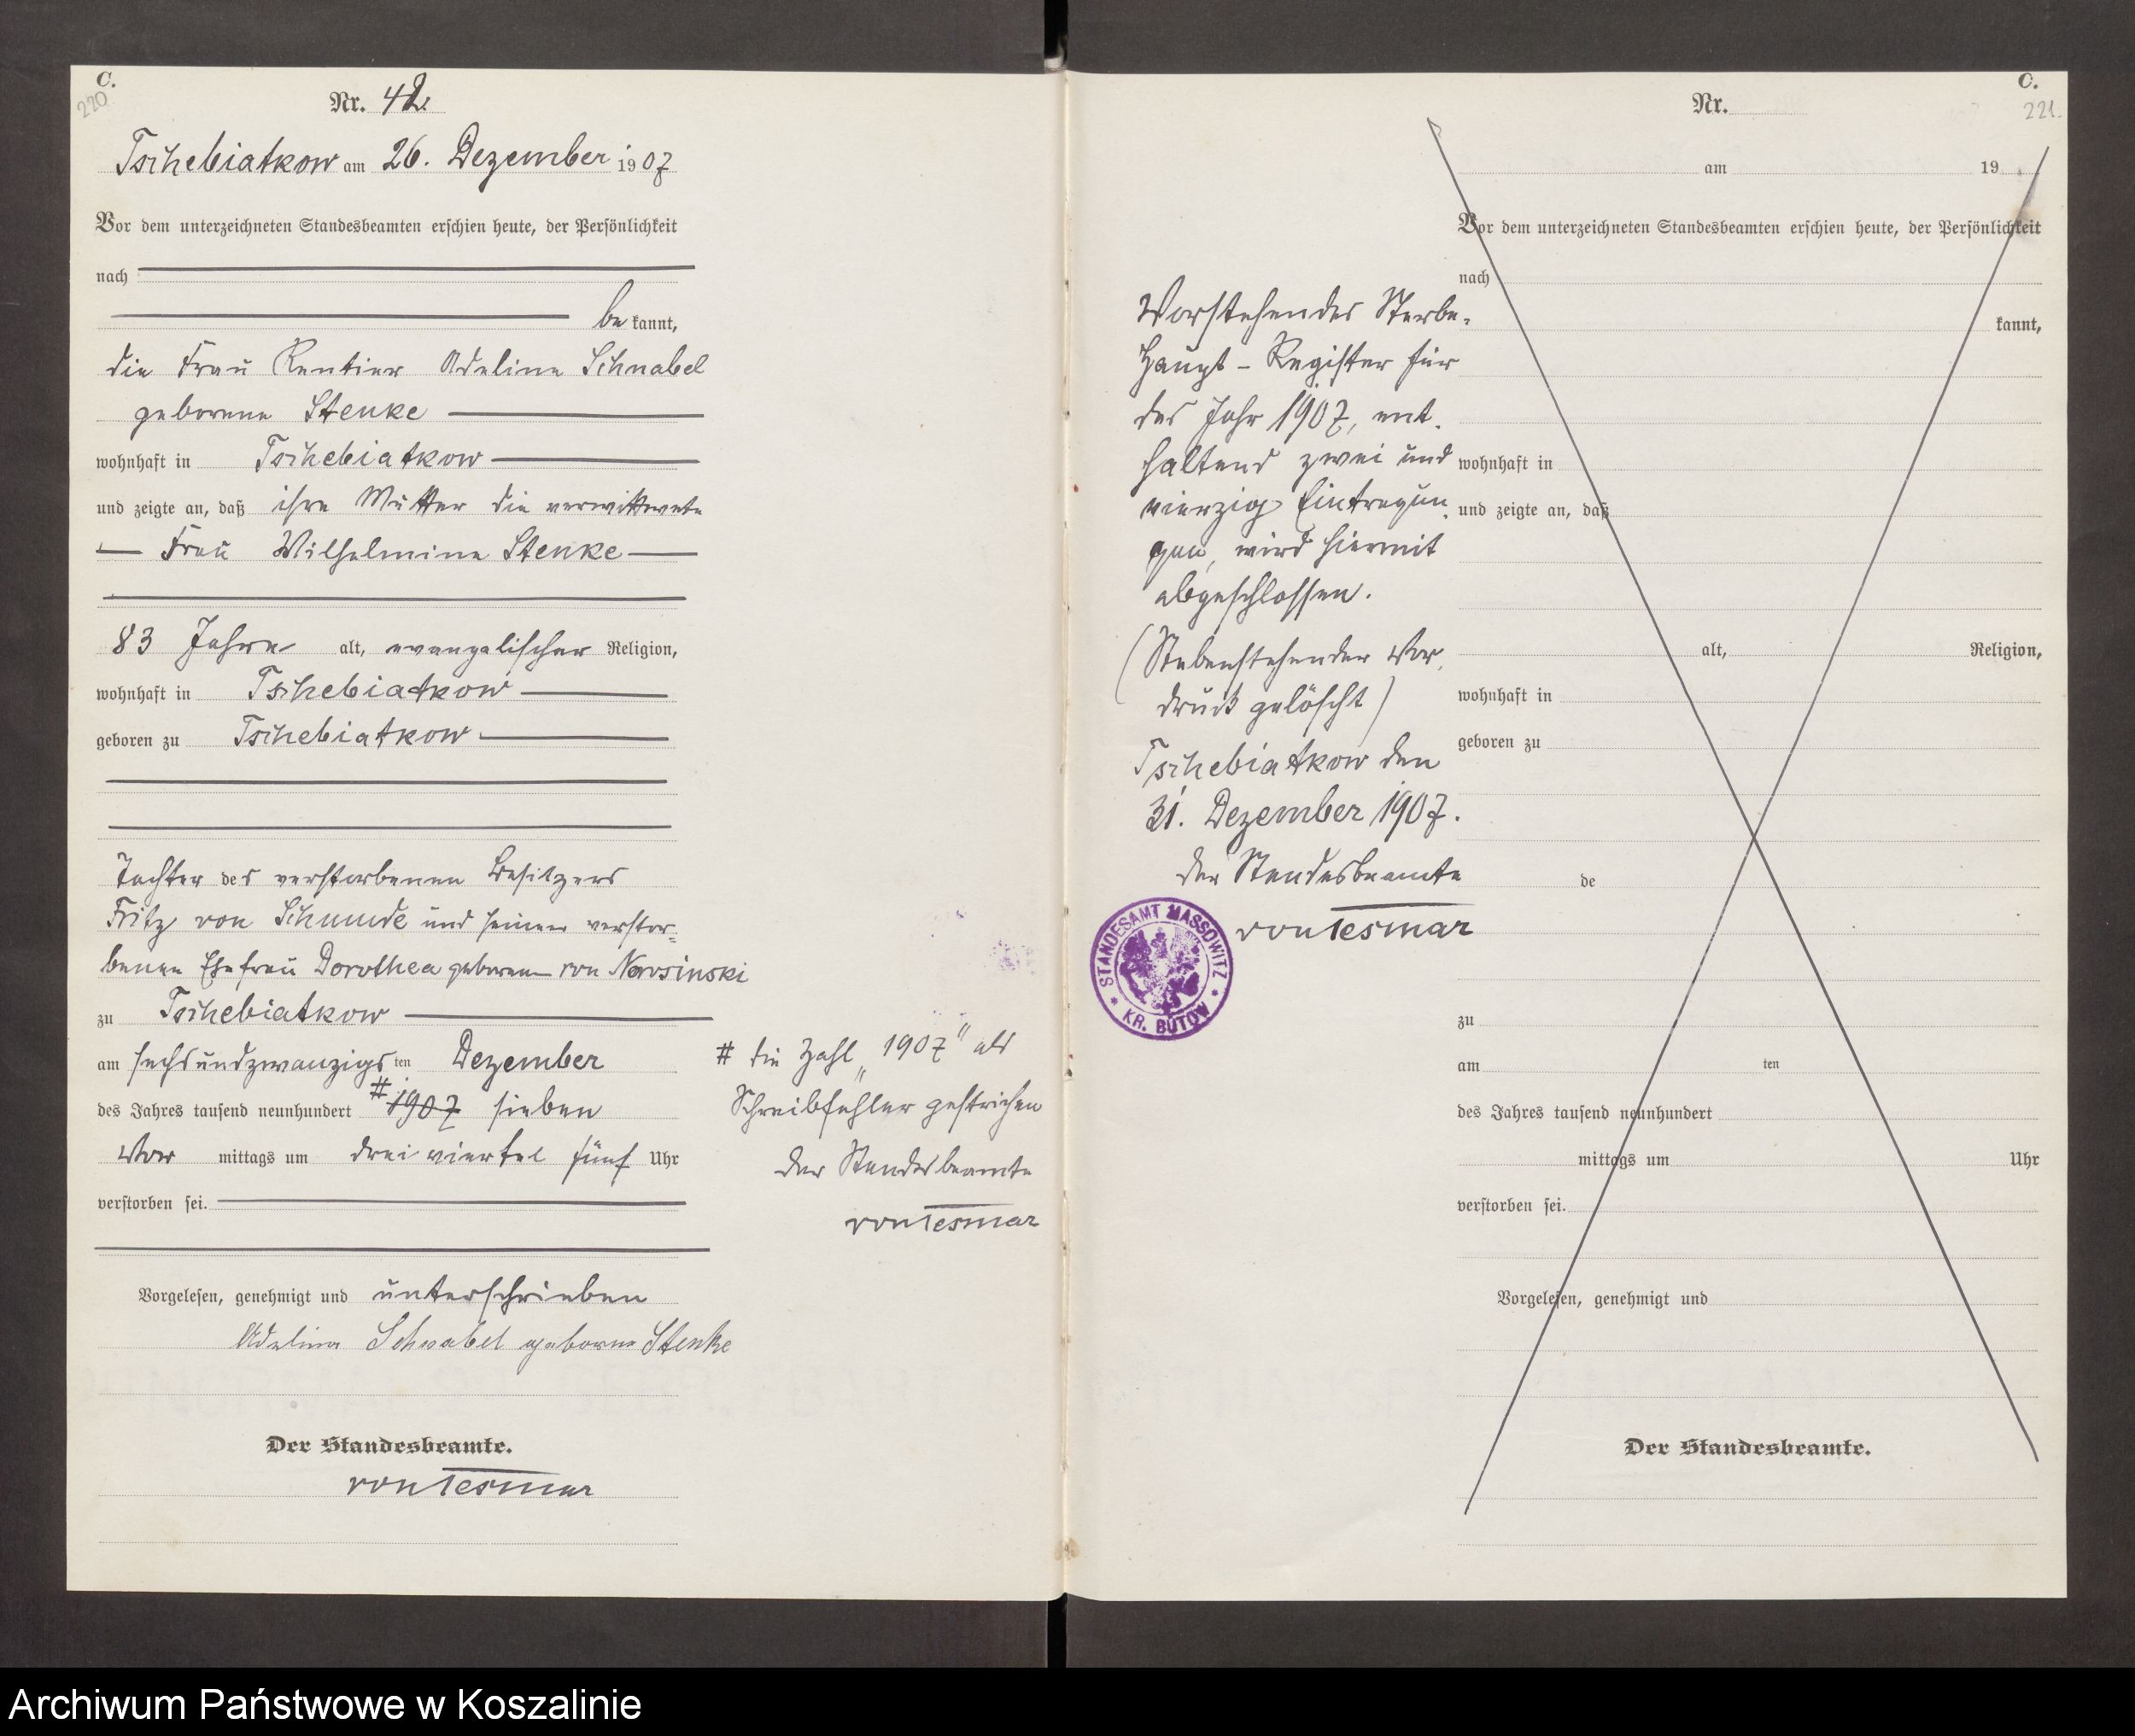 C.
220
Nr. 42.
Tschebiatkow am 26. Dezember 1907
Vor dem unterzeichneten Standesbeamten erschien heute, der Persönlichkeit
nach
be kannt,
die Frau Rentier Adeline Schnabel
geborene Stenke
wohnhaft in Tschebiatkow
und zeigte an, daß ihre Mutter die verwittwete
Frau Wilhelmine Stenke
83 Jahre alt, evangelischer Religion,
wohnhaft in Tschebiatkow
geboren zu Tschebiatkow
Tochter des verstorbenen Besitzers
Fritz von und seiner verstor=
benen Ehefrau Dorothea geborene von
zu Tschebiatkow
am sechsundzwanzigsten Dezember
des Jahres tausend neunhundert # 1907 sieben
Vor mittags um drei viertel fünf Uhr
verstorben sei.
Vorgelesen, genehmigt und unterschrieben
Adeline Schnabel geborne Stenke
Der Standesbeamte.
von Tesmar
# die Zahl „1907" als
Schreibfehler gestrichen
Der Standesbeamte
von Tesmar
C.
221.
Vorstehendes Sterbe-
Haupt-Register für
das Jahr 1907, ent-
haltend zwei und
vierzig Eintragun-
gen, wird hiermit
abgeschlossen.
(Nebenstehender Vor-
druck gelöscht)
Tschebiatkow den
31. Dezember 1907.
Der Standesbeamte
von Tesmar
STANDESAMT MASSOWITZ * KR. BÜTOW *
Nr.
am 19
Vor dem unterzeichneten Standesbeamten erschien heute, der Persönlichkeit
nach
kannt,
wohnhaft in
und zeigte an, daß
alt, Religion,
wohnhaft in
geboren zu
de
zu
am ten
des Jahres tausend neunhundert
mittags um Uhr
verstorben sei.
Vorgelesen, genehmigt und
Der Standesbeamte.
Archiwum Państwowe w Koszalinie